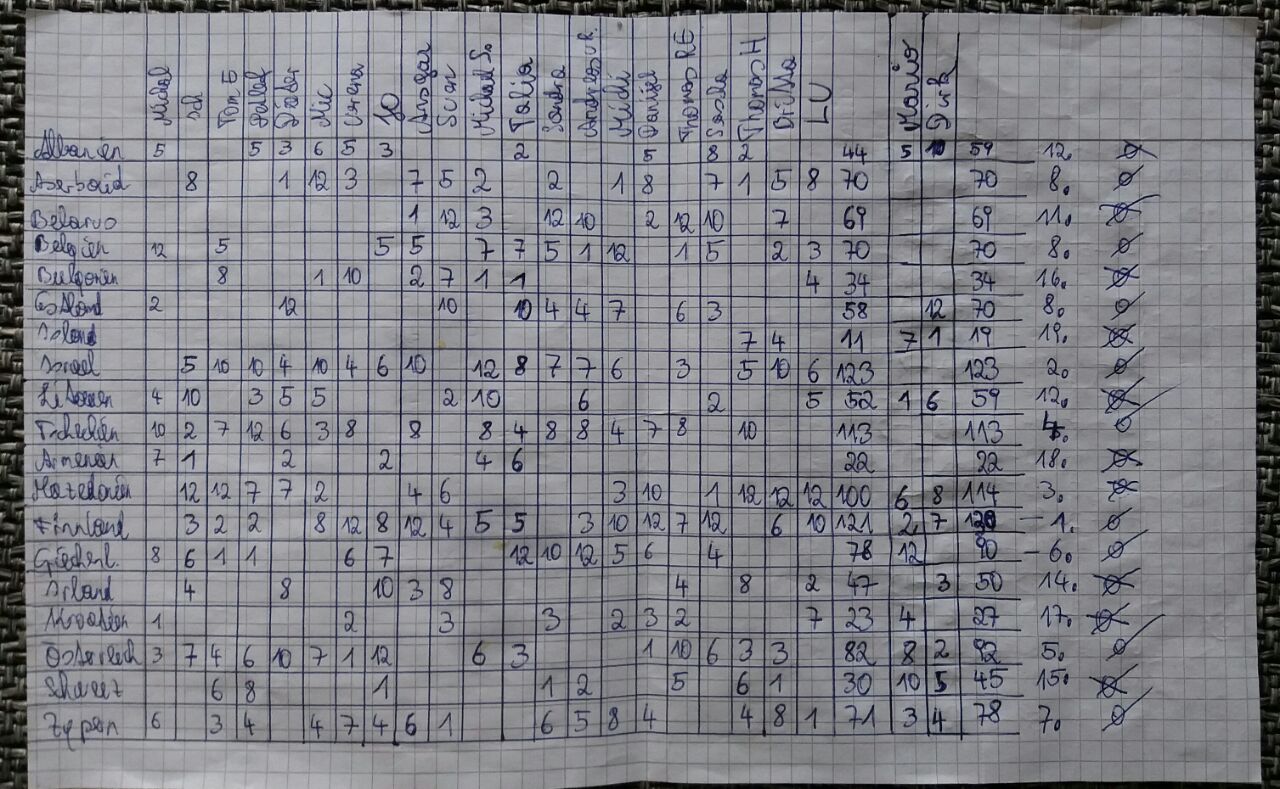 Michael Tom E Detlef Dieter Mic Verena Jo Ansgar Sven Michael S. Talia Sandra Andreas R. Michi Daniel Thomas RE Sascha Thomas H Britta LU Mario Dirk
Albanien 5 5 3 6 5 3 2 5 8 2 44 5 10 59 12.
Aserbaid 8 1 12 3 7 5 2 2 1 8 7 1 5 8 70 70 8.
Belarus 1 12 3 12 10 2 12 10 7 69 69 11.
Belgien 12 5 5 5 7 7 5 1 12 1 5 2 3 70 70 8.
Bulgarien 8 1 10 2 7 1 1 4 34 34 16.
Estland 2 12 10 10 4 4 7 6 3 58 12 70 8.
Island 7 4 11 7 1 19 19.
Israel 5 10 10 4 10 4 6 10 12 8 7 7 6 3 5 10 6 123 123 2.
Litauen 4 10 3 5 5 2 10 6 2 5 52 1 6 59 12.
Tschechien 10 2 7 12 6 3 8 8 8 4 8 8 4 7 8 10 113 113 4.
Armenien 7 1 2 2 4 6 22 22 18.
Mazedonien 12 12 7 7 2 4 6 3 10 1 12 12 12 100 6 8 114 3.
Finnland 3 2 2 8 12 8 12 4 5 5 3 10 12 7 12 6 10 121 2 7 1.
Griechenl. 8 6 1 1 6 7 12 10 12 5 6 4 78 12 90 6.
Irland 4 8 10 3 8 4 8 2 47 3 50 14.
Kroatien 1 2 3 3 2 3 2 7 23 4 27 17.
Österreich 3 7 4 6 10 7 1 12 6 3 1 10 6 3 3 82 8 2 92 5.
Schweiz 6 8 1 1 2 5 6 1 30 10 5 45 15.
Zypern 6 3 4 4 7 4 6 1 6 5 8 4 4 8 1 71 3 4 78 7.